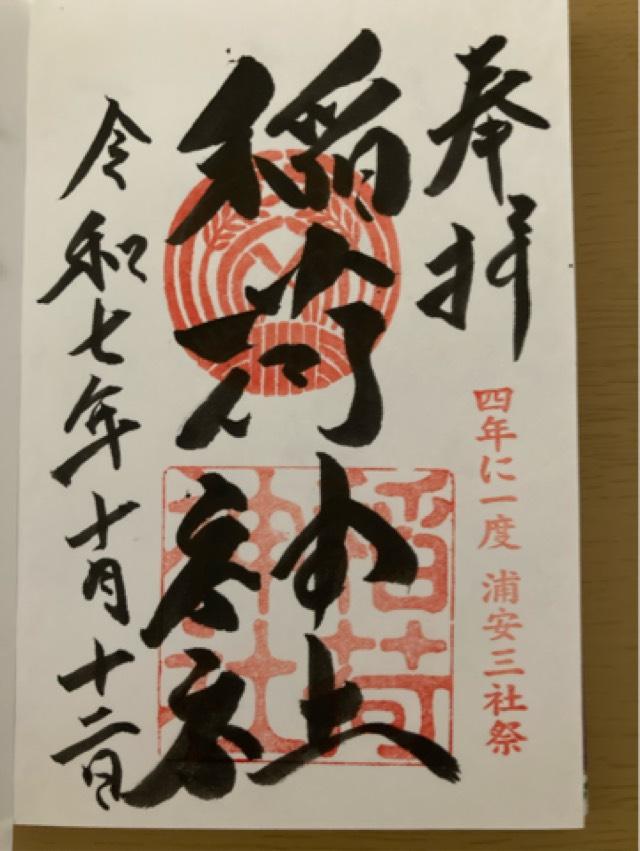 奉拝
四年に一度 浦安三社祭
稲荷神社
稲荷神社
令和七年十月十二日